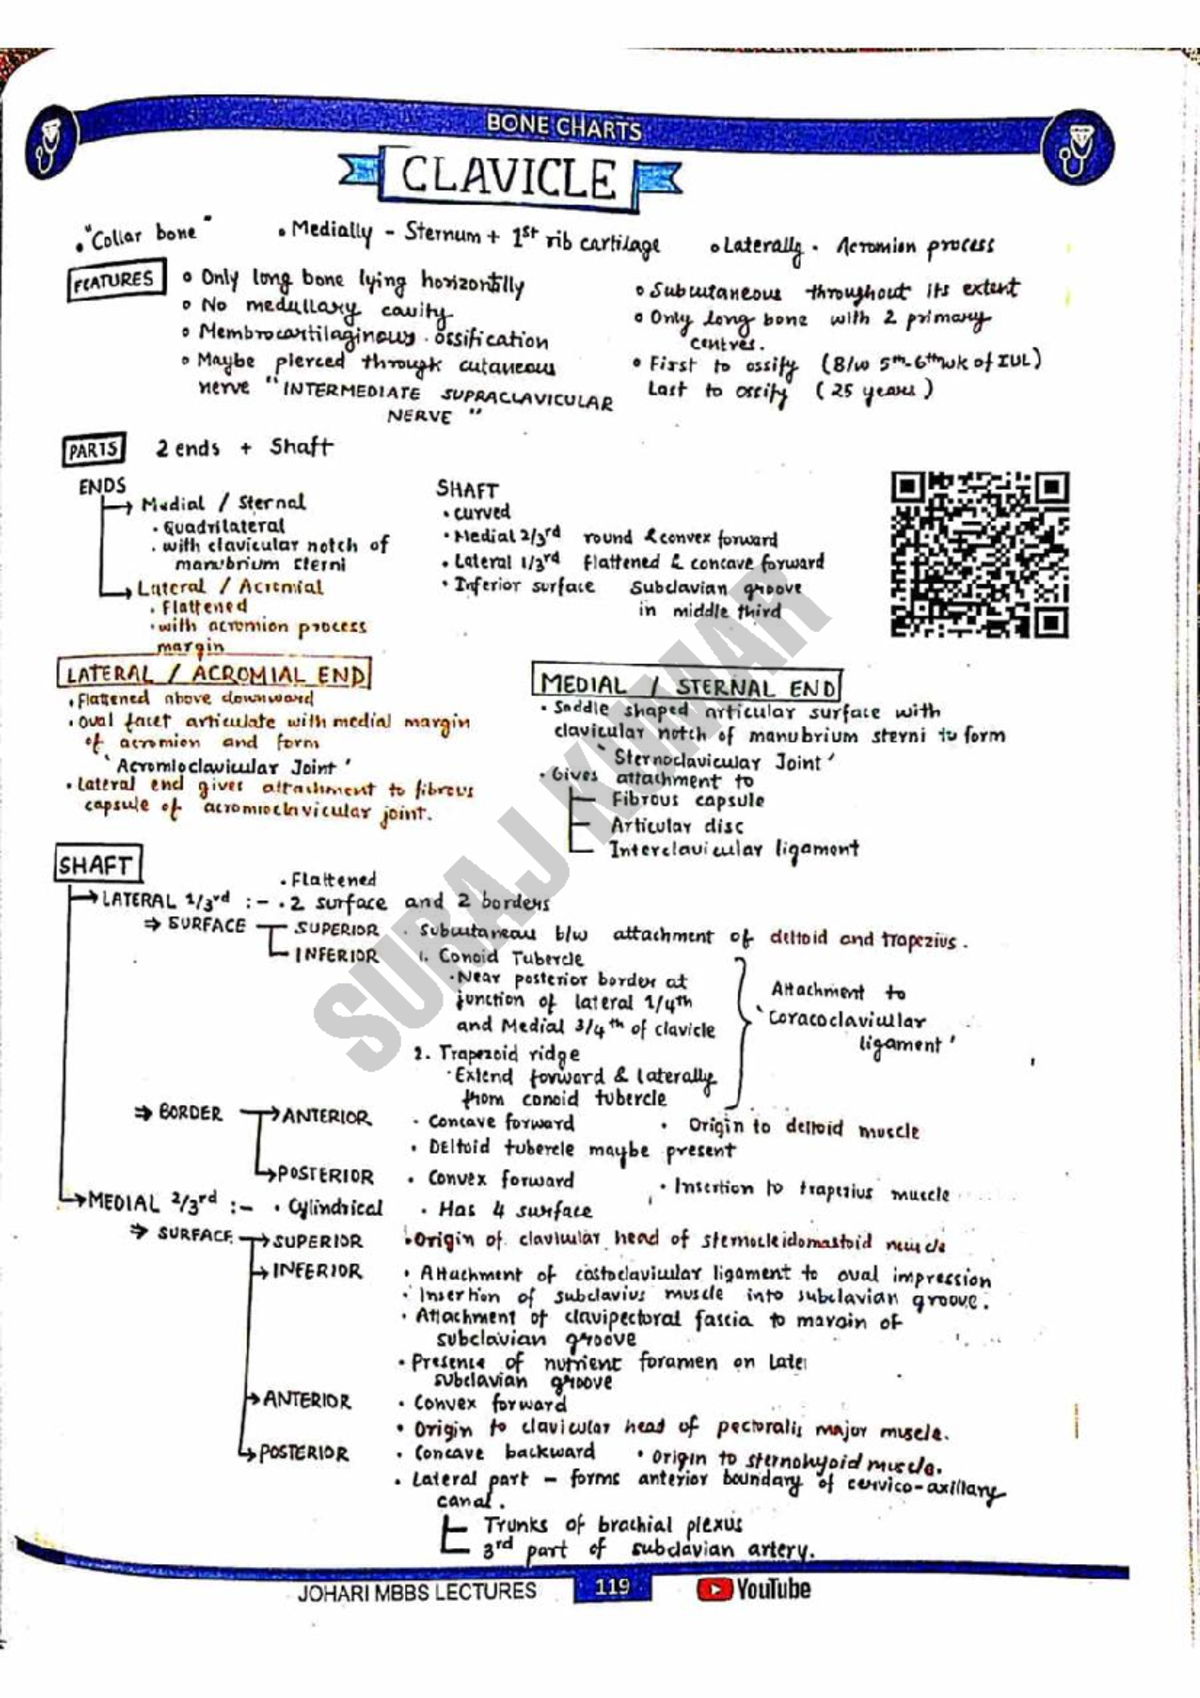 BONE CHARTS
CLAVICLE
• "Collar bone" • Medially - Sternum + 1st rib cartilage • Laterally - Acromion process
FEATURES
• Only long bone lying horizontally
• No medullary cavity
• Membrocartilaginous ossification
• Maybe pierced through cutaneous
nerve "INTERMEDIATE SUPRACLAVICULAR
NERVE"
• Subcutaneous throughout its extent
• Only long bone with 2 primary
centres.
• First to ossify (B/w 5th-6th wk of IUL)
Last to ossify (25 years)
PARTS 2 ends + Shaft
ENDS
→ Medial / Sternal
• Quadrilateral
• with clavicular notch of
manubrium sterni
→ Lateral / Acromial
• Flattened
• with acromion process
margin
SHAFT
• curved
• Medial 2/3rd round & convex forward
• Lateral 1/3rd flattened & concave forward
• Inferior surface Subclavian groove
in middle third
LATERAL / ACROMIAL END
• Flattened above downward
• oval facet articulate with medial margin
of acromion and form
'Acromioclavicular Joint'
• Lateral end gives attachment to fibrous
capsule of acromioclavicular joint.
MEDIAL / STERNAL END
• Saddle shaped articular surface with
clavicular notch of manubrium sterni to form
'Sternoclavicular Joint'
• Gives attachment to
Fibrous capsule
Articular disc
Interclavicular ligament
SHAFT
• Flattened
→ LATERAL 1/3rd :- • 2 surface and 2 borders
⇒ SURFACE SUPERIOR • Subcutaneous b/w attachment of deltoid and trapezius.
INFERIOR 1. Conoid Tubercle
• Near posterior border at
junction of lateral 1/4th
and Medial 3/4th of clavicle
2. Trapezoid ridge
• Extend forward & laterally
from conoid tubercle
Attachment to
'Coracoclavicular
ligament'
⇒ BORDER → ANTERIOR • Concave forward • Origin to deltoid muscle
• Deltoid tubercle maybe present
→ POSTERIOR • Convex forward • Insertion to trapezius muscle
→ MEDIAL 2/3rd :- • Cylindrical • Has 4 surface
⇒ SURFACE → SUPERIOR • Origin of clavicular head of sternocleidomastoid muscle
→ INFERIOR • Attachment of costoclavicular ligament to oval impression
• Insertion of subclavius muscle into subclavian groove.
• Attachment of clavipectoral fascia to margin of
subclavian groove
• Presence of nutrient foramen on late
subclavian groove
→ ANTERIOR • Convex forward
• Origin to clavicular head of pectoralis major muscle.
→ POSTERIOR • Concave backward • Origin to sternohyoid muscle.
• Lateral part - forms anterior boundary of cervico-axillary
canal.
Trunks of brachial plexus
3rd part of subclavian artery.
SURAJ KUMAR
JOHARI MBBS LECTURES 119 YouTube